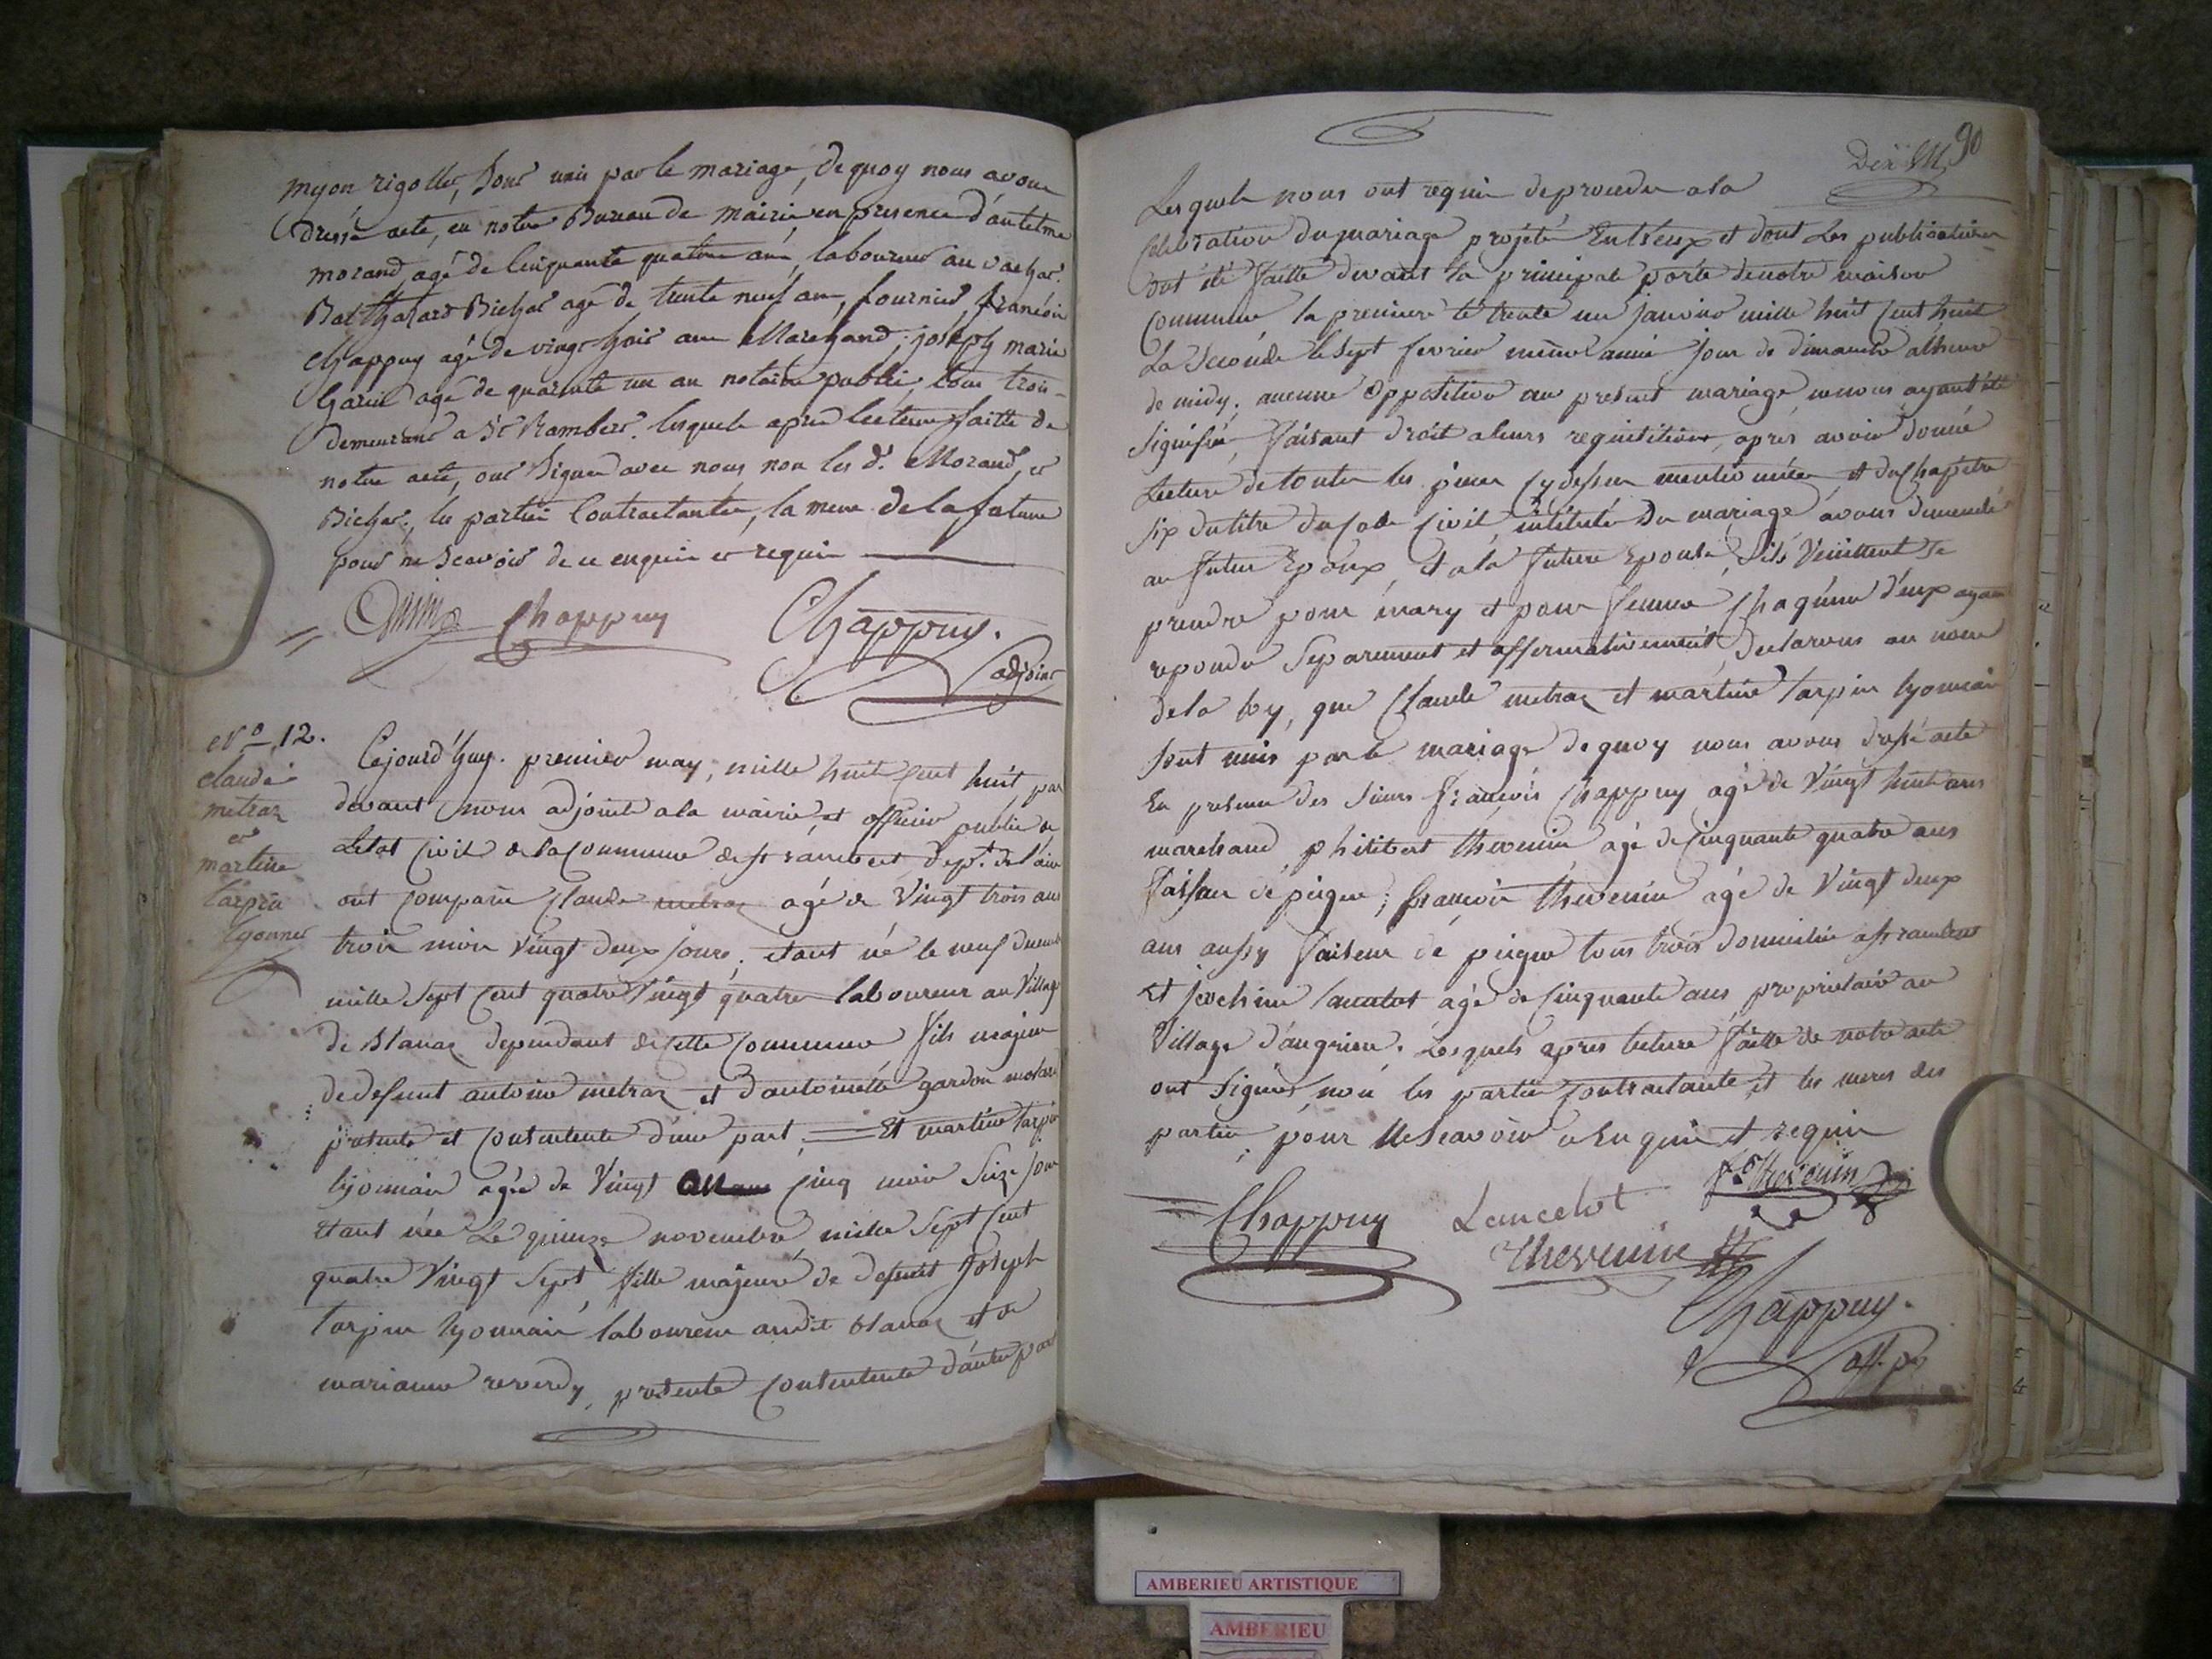 myon rigollet, sont unis par le mariage, de quoy nous avons
dressé acte, en notre Bureau de Mairie en presence d'antelme
morand agé de Cinquante quatre ans, laboureur au
Balthazard Bichat agé de trente neuf ans, fournier, francois
Chappuy agé de vingt huit ans Marchand, joseph marie
agé de quarante un an notaire public, tous trois
demeurant a St Rambert. lesquels apres lecture faitte de
notre acte, ont Signé avec nous non les d. Morand, et
Bichat, les parties Contractantes, la mere de la future
pour ne Scavoir de ce enquis et requis
Chappuy Chappuy.
adjoint
No 12.
claude
metraz
et
martine
tarpin
lyonnet
Cejourd'huy premier may, mille huit cent huit, par
devant nous adjoint a la mairie, et officier public de
Letat Civil de la Commune de st rambert dept. de l'ain
ont comparu Claude metraz agé de Vingt trois ans
trois mois vingt deux jours, etant né le neuf
mille Sept Cent quatre Vingt quatre laboureur au Village
de Blanaz dependant de cette Commune fils majeur
de defunt antoine metraz et d'antoinette gardon
presente et Consentente d'une part, Et martine tarpin
lyonnais agée de Vingt ans cinq mois Seize jours
Etant née Le quinze novembre mille Sept Cent
quatre Vingt Sept, fille majeure de defunt Joseph
tarpin lyonnais laboureur audit blanaz et de
marianne reverdy, presente Consentente d'autre part
90
Dix
Lesquels nous ont requis de proceder a la
Celebration du mariage projeté Entr'eux et dont Les publications
ont été faitte devant la principale porte de notre maison
Commune la premiere le trente un janvier mille huit Cent huit
La Seconde le Sept fevrier meme année jour de dimanche a l'heure
de midy; aucune Opposition au present mariage ne nous ayant été
Signifiée, faisant droit a leurs requisitions, apres avoir donné
Lecture de toutes les pieces Cy dessus mentionnées, et du Chapitre
Six du titre du Code Civil, intitulé Du mariage avons demandé
au futur Epoux, et a la future Epouse, S'ils Veuillent se
prendre pour mary et pour femme, Chaqune d'eux ayant
repondu Separement et affirmativement, declarons au nom
de la loy, que Claude metraz et martine tarpin lyonnais
sont unis par le mariage de quoy nous avons dressé acte
En presence des Sieurs francois Chappuy agé de Vingt huit ans
marchand philibert thevenin agé de Cinquante quatre ans
faiseur de peigne; francois thevenin agé de Vingt deux
ans aussy faiseur de peigne tous trois domiciliés a st rambert
et jean lancelot agé de Cinquante ans proprietaire au
Village d'angrieu. Lesquels apres lecture faitte de notre acte
ont Signés, non les parties Contractante, et les meres des
parties, pour ne Scavoir a Enquis et requis
Chappuy Lancelot fs thevenin
thevenin
Chappuy.
off. p.
AMBERIEU ARTISTIQUE
AMBERIEU